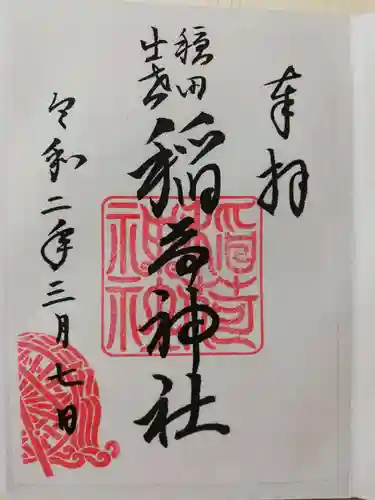 奉拝
穏田
出世
稲荷神社
稲荷
神社
令和二年三月七日